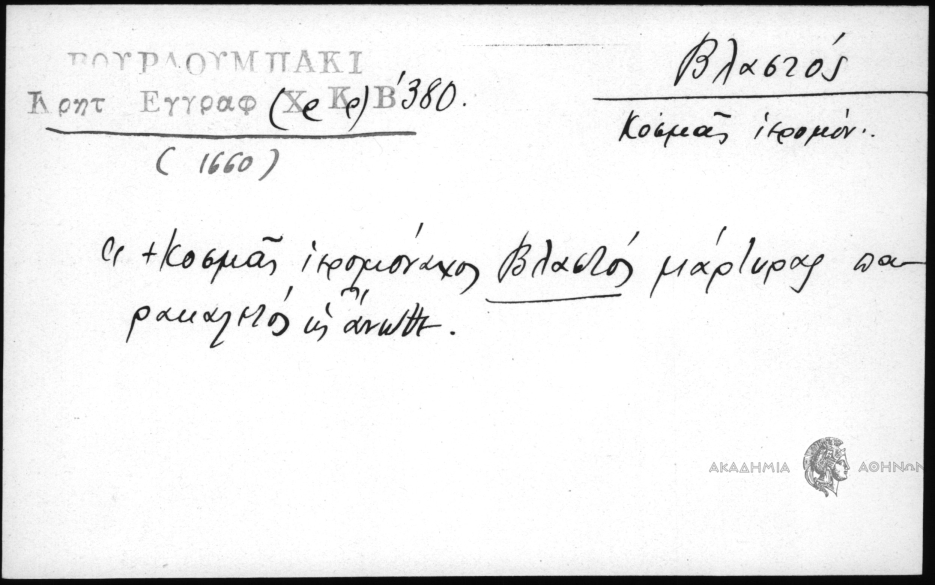 ΒΟΥΡΔΟΥΜΠΑΚΙ
Κρητ Εγγραφ Χ Κ Β' 380.
(1660)
Βλαστός
Κοσμᾶς ἱερομόν..
+Κοσμᾶς ἱερομόναχος Βλαστός μάρτυρας πα-
ρακαλετός ὡς ἄνωθε.
ΑΚΑΔΗΜΙΑ ΑΘΗΝΩΝ